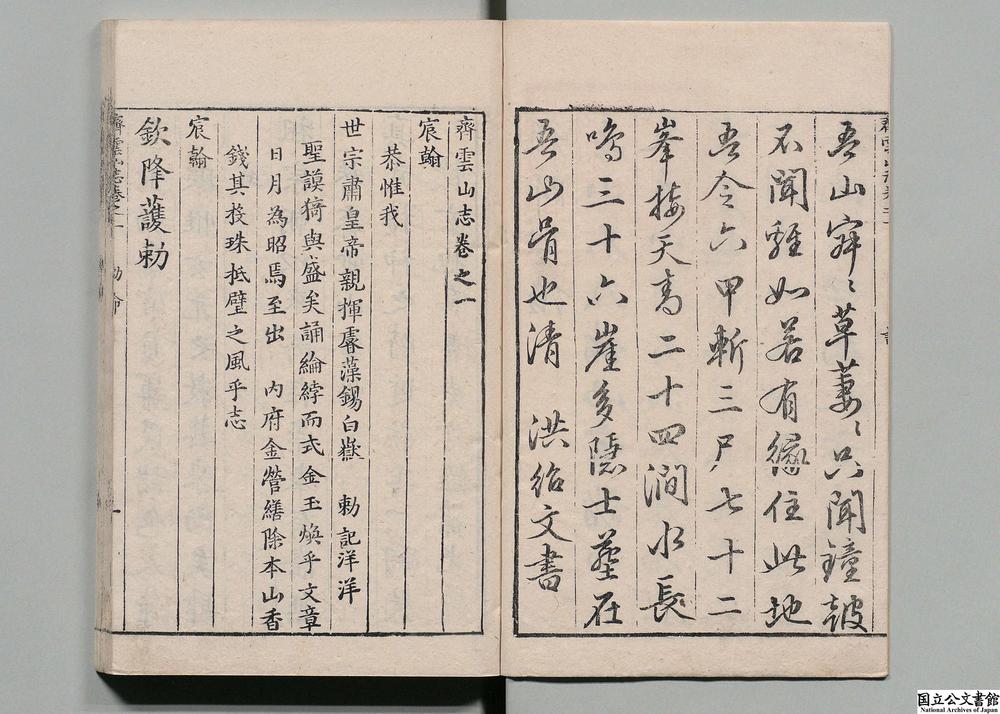 吾山穽〻草萋〻只聞鐘皷
不聞雞如若有緣住此地
吾令六甲斬三尸七十二
峯接天青二十四澗水長
鳴三十六崖多隱士葬在
吾山骨也清 洪紹文書
齊雲山志卷之一
宸翰
恭惟我
世宗肅皇帝親揮睿藻錫白嶽 勅記洋洋
聖謨猗與盛矣誦綸綍而式金玉煥乎文章
日月為昭焉至出 內府金營繕除本山香
錢其投珠抵璧之風乎志
宸翰
欽降護勅
齊雲山志卷之一 勅命 一
国立公文書館
National Archives of Japan